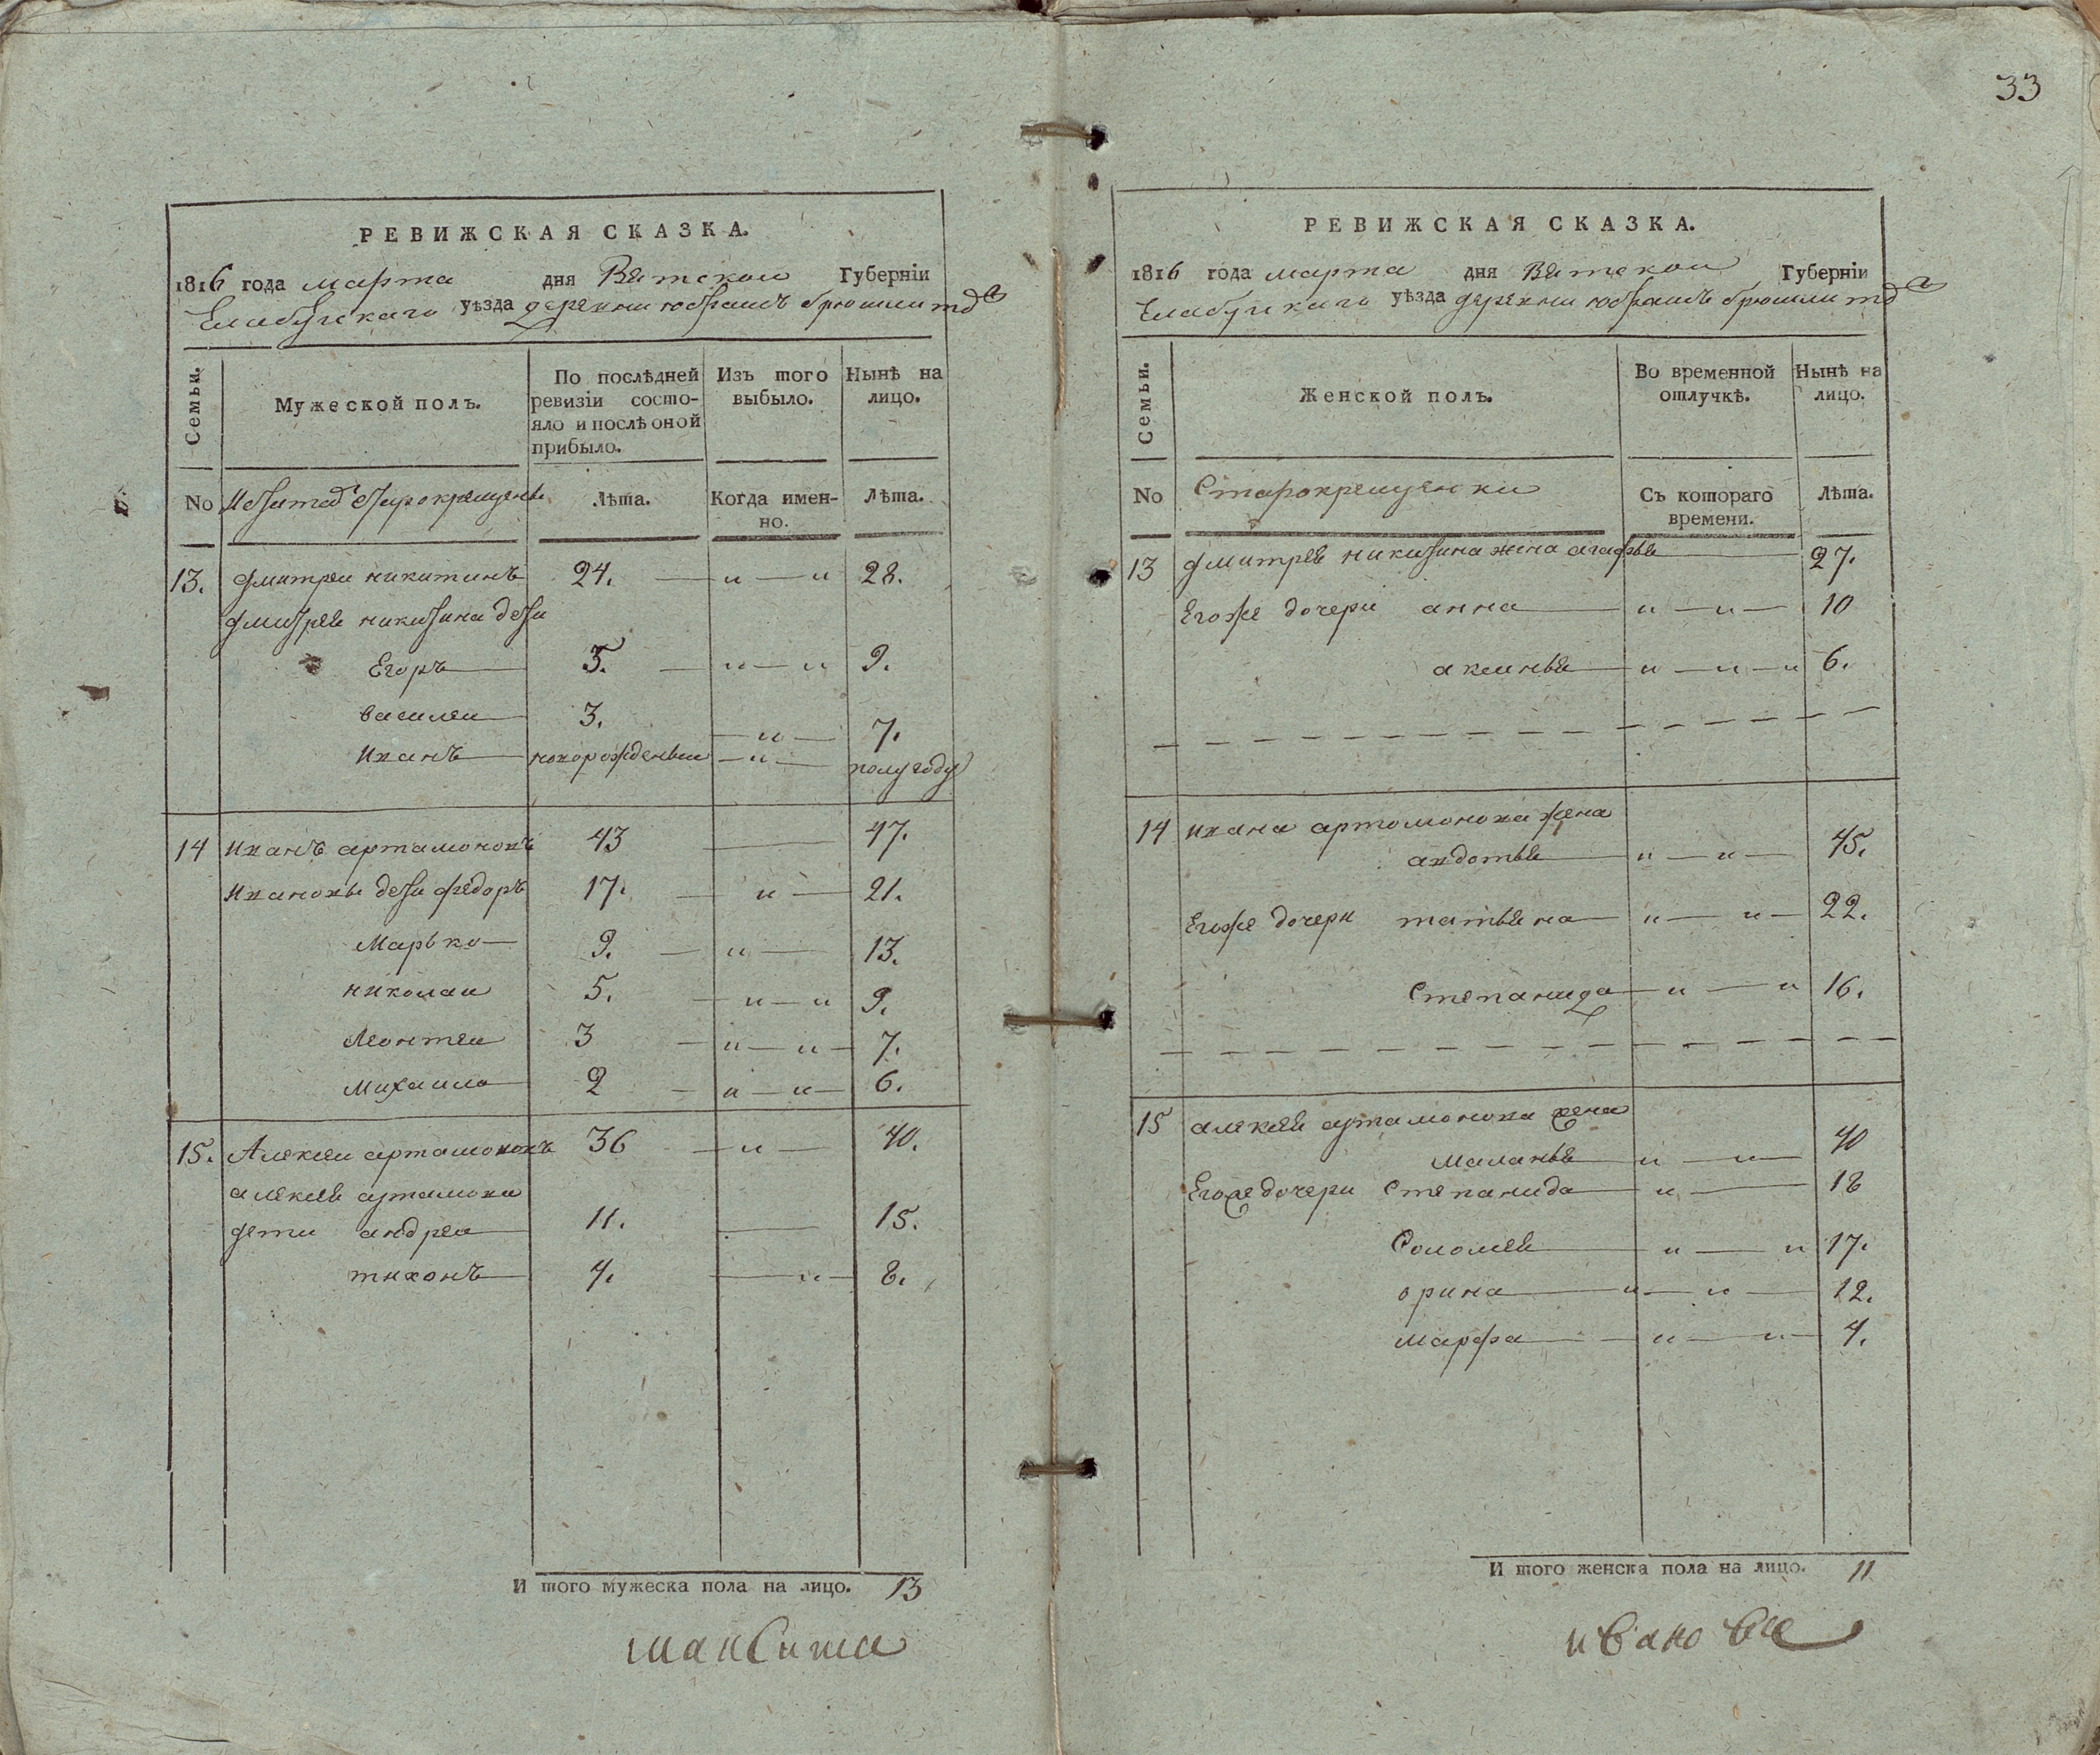 33
РЕВИЖСКАЯ СКАЗКА.
1816 года марта дня Вятскои Губерніи
Елабугскаго уѣзда деревни юбрашъ брюшли тожъ
Семьи.
Мужеской полъ.
По послѣдней ревизіи состо-
яло и послѣ оной
прибыло.
Изъ того
выбыло.
Нынѣ на
лицо.
No старокрещены
Лѣта.
Когда имен-
но.
Лѣта.
13. дмитреи никитинъ 24. — и — и 28.
дмитрея никитина дети
Егоръ 5. — и — и 9.
василеи 3. — и — 7.
Иванъ новорожденыи — и — полугоду
14 Иванъ артамоновъ 43 — 47.
Ивановы дети федоръ 17. — и — 21.
Марько 9. — и — 13.
николаи 5. — и — и 9.
Леонтеи 3 — и — и — 7.
михаило 2 — и — и — 6.
15. Алексеи артамоновъ 36 — и — 40.
алексея артамонова
дети андреи 11. — 15.
тихонъ 4. — и — 8.
И того мужеска пола на лицо. 13
РЕВИЖСКАЯ СКАЗКА.
1816 года марта дня Вятскои Губерніи
Елабугскаго уѣзда деревни юбрашъ брюшли тожъ
Семьи.
Женской полъ.
Во временной
отлучкѣ.
Нынѣ на
лицо.
No Старокрещенки
Съ котораго
времени.
Лѣта.
13 дмитрея никитина жена агафья — 27.
Егоже дочери анна — и — и — 10
аксинья — и — и — и 6.
14 Ивана артомонова жена
авдотья — и — и — 45.
Егоже дочери татьяна — и — и — 22.
Степанида — и — и 16.
15 алексея артамонова жена
маланья — и — и — 40
Егоже дочери Степанида — и — 18
Соломея — и — и 17.
орина — и — и — 12.
марфа — и — и — 4.
И того женска пола на лицо. 11
ивановы